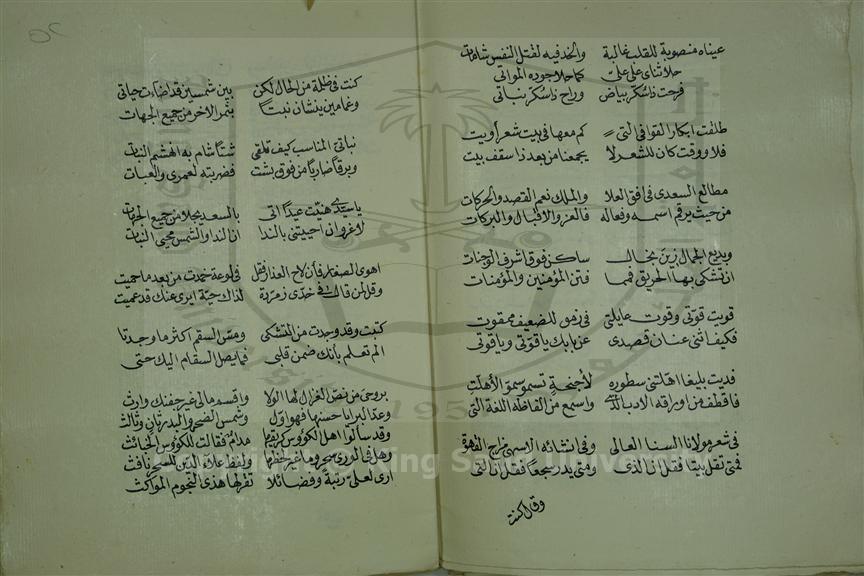 عيناه منصوبة للقلب غالبة والخد فيه لقتل النفس شامات
حلا ثنائى على على كما حلا جوده المواتى
فرحت ذا سكر بياض وراح ذا سكر نباتى
طلقت ابكار القوافى التى كم معها فى بيت شعر أويت
فلا ووقت كان للشعر لا يجمعنا من بعد ذا سقف بيت
مطالع السعدى فى افق العلا والملك نعم القصد والحركات
من حيث يرقم اسمه وفعاله فالعز والاقبال والبركات
وبديع الجمال زين بخال ساكن فوق اشرف الوجنات
ان تشكى بها الحريق فمها فتن المؤمنين والمؤمنات
قويت قوتى وقوت عايلتى فى زمن للضعيف ممقوت
فكيف اثنى عنان قصدى عن بابك يا قوتى ويا قوتى
فديت بليغا اهلتنى سطوره لأجنحة تسمو سمو الأهلة
فاقطف من اوراقه الادب الذى واسمع من الفاظه اللغة التى
فى شعر مولانا السنا العالى وفى انشائه الاسهى مزاج القهوة
فمتى تقل بيتا فقل انا الذى ومتى يدر سجعا فقل انا التى
وقال كنت
٥٢
كنت فى ظلمة من الحال لكن بين شمسين قد اضاءت حياتى
وغمامين ينشان نبتا بثمر الاخر من جميع الجهات
نباتى المناسب كيف تلقى شتا شام به الهشيم النبات
وبرقا ضاربا من فوق بشت فضربته لعمرى والعبات
يا سيدى هنيت عيدا اتى بالسعد يجلا من جميع الجهات
لا غرو ان احييتنى بالندا ان الندا والشمس محيى النبات
اهوى الصغار فأن لاح العذار فقل فلوعة خمدت من بعد ما حميت
وقل لمن قال فى خدى زمردة لذاك حية ايرى عنك قد عميت
كتبت وقد وجدت من التشكى ومس السقم اكثر ما وجدتا
الم تعلم بأنك ضمن قلبى فما يصل السقام اليك حتى
بروحى من نص الغزال لها الولا واقسم مالى غير جفنك وارث
وعد البرايا حسنها فهو اول وشمس الضحى والبدر ثان وثالث
وقد سألوا اهل الكؤوس كريقها مدام فقالت للكؤوس الخبائث
وهل فى الورى سحر وما غير لحظها ولفظ علاء الدين للسحر نافث
ارى لعلى رتبة وفضائلا تقر لها هذى النجوم المواكث